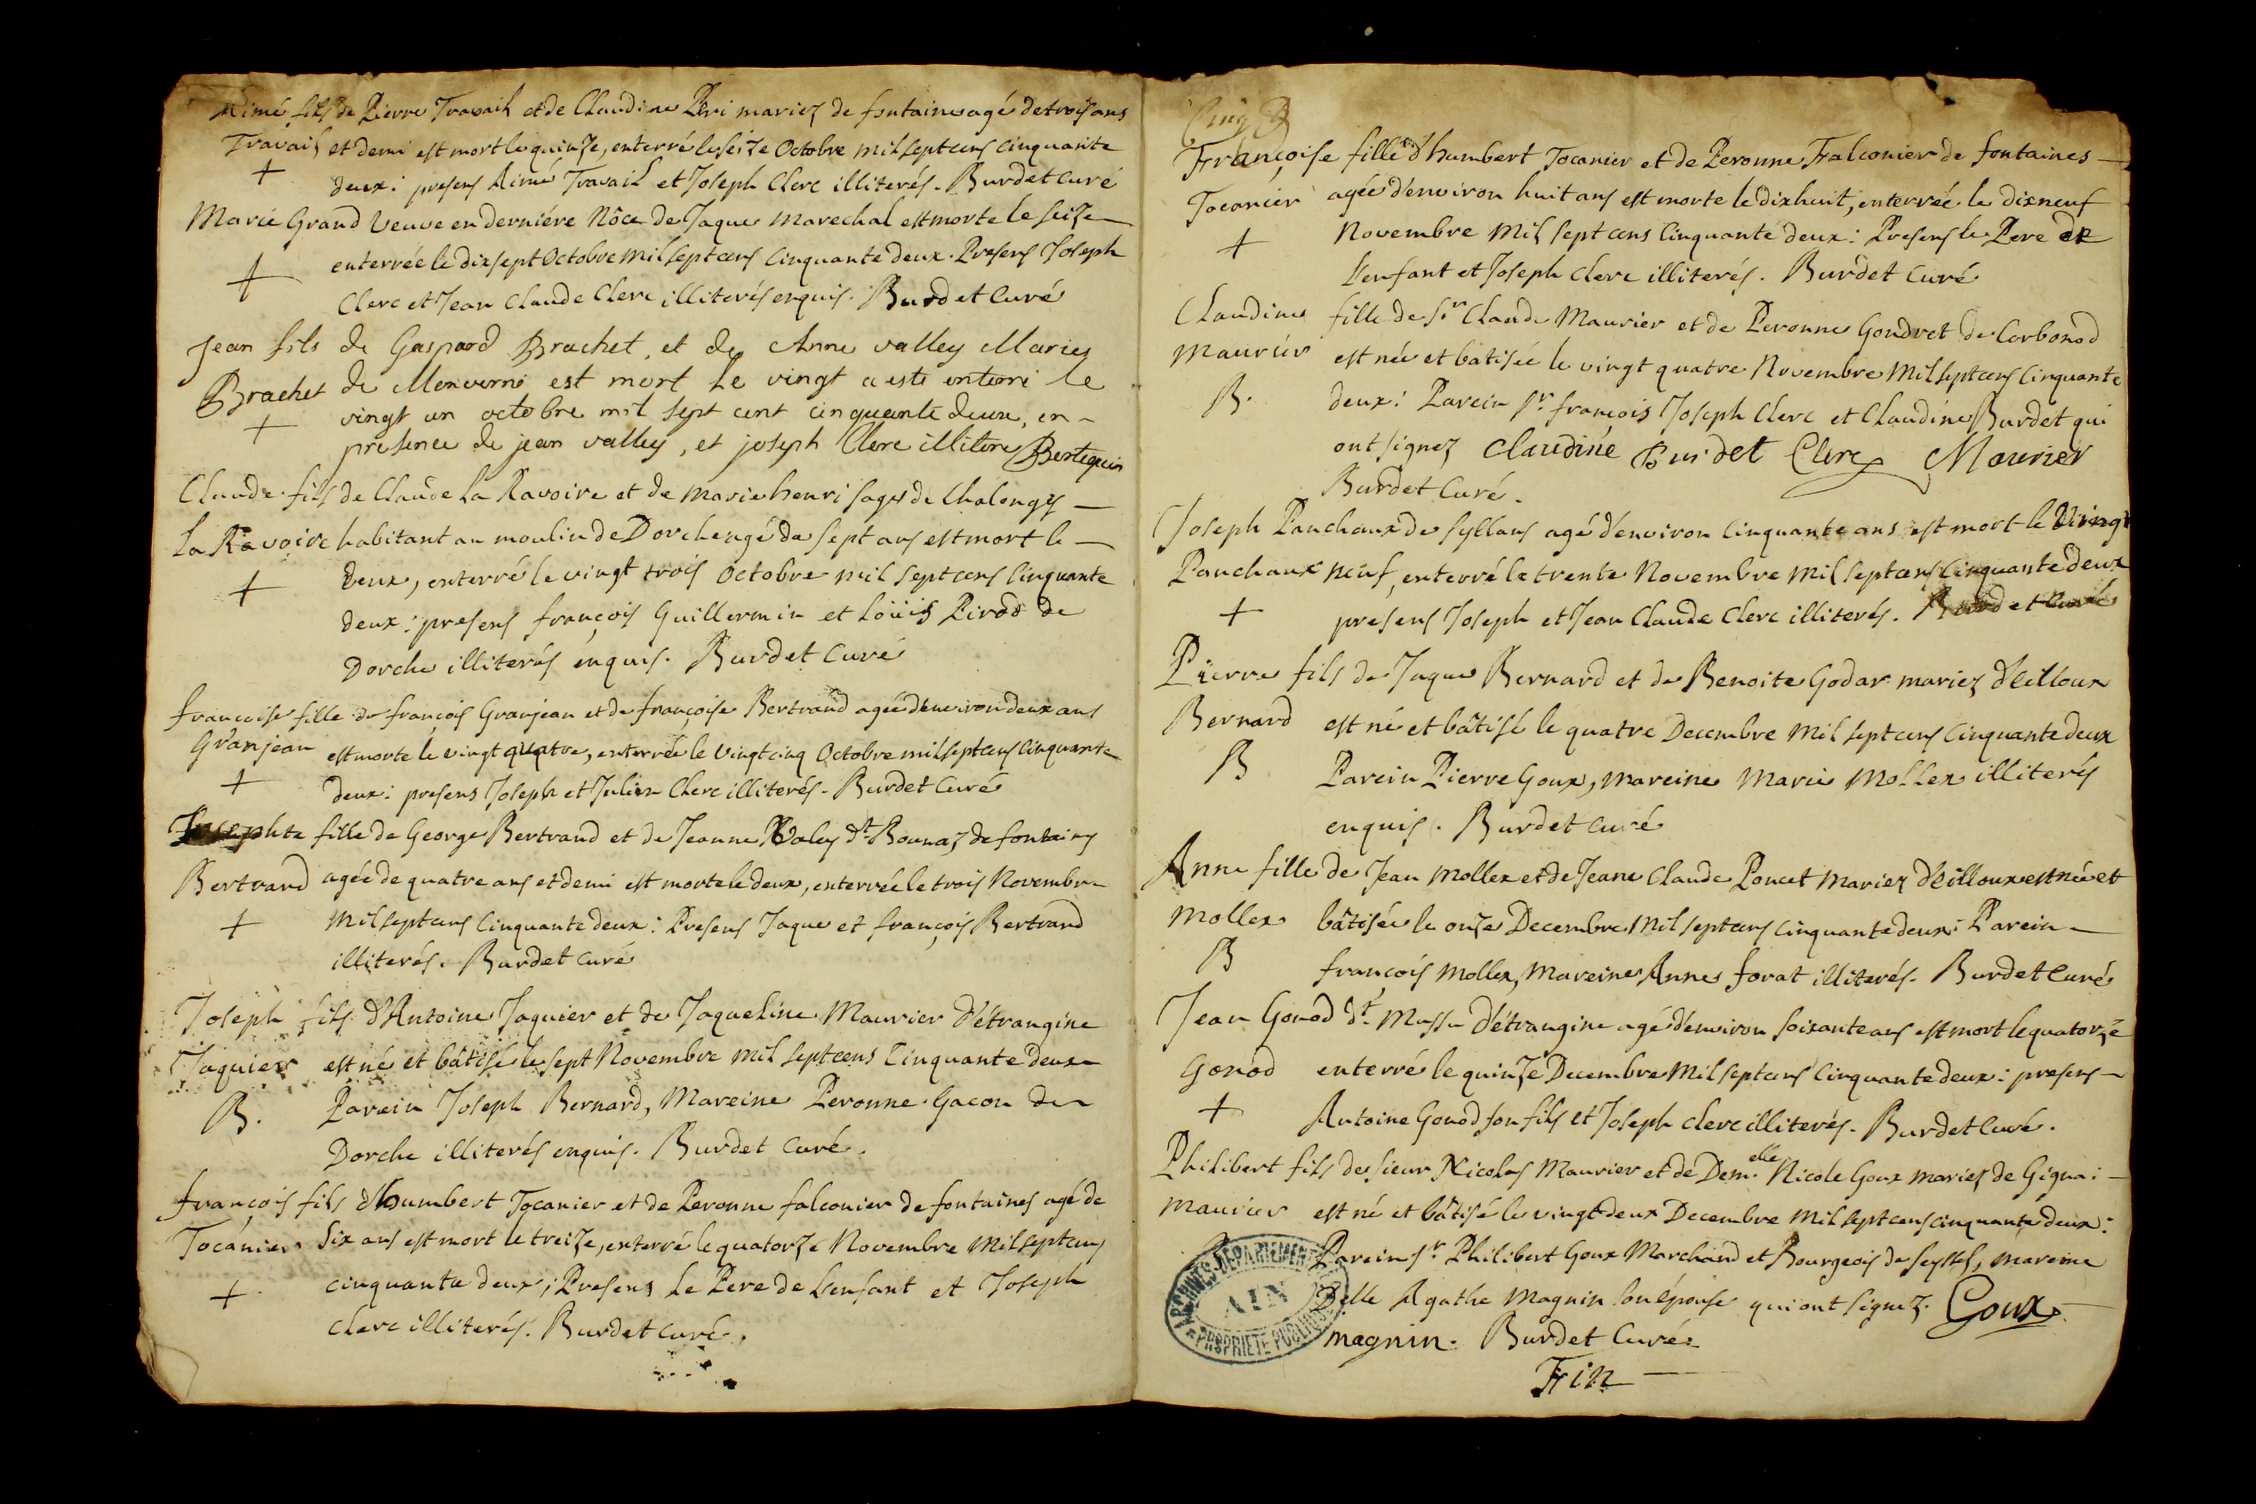 Aimé fils de Pierre Travail et de Claudine Peri mariez de fontaines agé de trois ans
Travail et demi est mort le quinze, enterré le seize Octobre mil sept cens cinquante
+ deux: presens Aimé Travail et Joseph Clerc illiterés. Burdet Curé
Marie Grand Veuve en derniére Nôce de Jaque Marechal est morte le seize
enterrée le dixsept Octobre mil sept cens cinquante deux. Presens Joseph
+ Clerc et Jean Claude Clerc illiterés enquis. Burdet Curé
Jean fils de Gaspard Brachet, et de Anne valley Mariez
Brachet de est mort le vingt a esté enterré le
+ vingt un octobre mil sept cent cinquante deux, en
presence de jean valley, et joseph Clerc illitere
Claude fils de Claude La Ravoire et de Marie henri sages de Chalonges
La Ravoire habitant au moulin de Dorche agé de sept ans est mort le
+ deux, enterré le vingt trois Octobre mil sept cens cinquante
deux: presens françois Guillermin et Loüis Pirod de
Dorche illiterés enquis. Burdet Curé
françoise fille de françois Granjean et de françoise Bertrand agée d'environ deux ans
Granjean est morte le vingt quatre, enterrée le vingt cinq Octobre mil sept cens cinquante
+ deux: presens Joseph et Julien Clerc illiterés. Burdet Curé
Josephte fille de George Bertrand et de Jeanne Valey dt. Bounaz de fontaines
Bertrand agée de quatre ans et demi est morte le deux, enterrée le trois Novembre
+ mil sept cens cinquante deux: Presens Jaque et françois Bertrand
illiterés. Burdet Curé
Joseph fils d'Antoine Jaquier et de Jaqueline Maurier d'étrangine
Jaquier est né et bâtisé le sept Novembre mil sept cens Cinquante deux
B. Parein Joseph Bernard, Mareine Peronne Gacon de
Dorche illiterés enquis. Burdet Curé.
françois fils d'humbert Tocanier et de Peronne falconier de fontaines agé de
Tocanier six ans est mort le treize, enterré le quatorze Novembre Mil sept cens
+ cinquante deux; Presens Le Pere de L'enfant et Joseph
Clerc illiterés. Burdet Curé.
Cinq
Françoise fille d'humbert Tocanier et de Peronne Falconier de fontaines
Tocanier agée d'environ huit ans est morte le dixhuit, enterrée le dixneuf
+ Novembre Mil sept cens Cinquante deux: Presens le Pere de
L'enfant et Joseph Clerc illiterés. Burdet Curé
Claudine fille de Sr. Claude Maurier et de Peronne Goudret de Corbonod
Maurier est née et bâtisée le vingt quatre Novembre Mil sept cens Cinquante
B. deux: Parein Sr. françois Joseph Clerc et Claudine Burdet qui
ont signez Claudine Burdet Clerc Maurier
Burdet Curé.
Joseph Panchaux de Syllans agé d'environ Cinquante ans est mort le Vingt
Panchaux neuf, enterré le trente Novembre Mil sept cens Cinquante deux
+ presens Joseph et Jean Claude Clerc illiterés. Burdet Curé
Pierre fils de Jaque Bernard et de Benoite Godar mariez d'Eilloux
Bernard est né et bâtisé le quatre Decembre Mil sept cens Cinquante deux
B Parein Pierre Goux, Mareine Marie Mollex illiterés
enquis. Burdet Curé
Anne fille de Jean Mollex et de Jeane Claude Poncet Mariez d'Eilloux est née et
Mollex bâtisée le onze Decembre Mil sept cens Cinquante deux: Parein
B françois Mollex, Mareine Anne forat illiterés. Burdet Curé
Jean Gonod dt. Mussu d'étrangine agé d'environ soixante ans est mort le quatorze
Gonod enterré le quinze Decembre Mil sept cens Cinquante deux: presens
+ Antoine Gonod son fils et Joseph Clerc illiterés. Burdet Curé.
Philibert fils de sieur Nicolas Maurier et de Demelle Nicole Goux mariez de Gignai
Maurier est né et bâtisé le vingt deux Decembre Mil sept cens cinquante deux:
Parein Sr. Philibert Goux Marchand et Bourgeois de Seyssel, mareine
Delle Agathe Magnin son épouse qui ont signez. Goux
magnin. Burdet Curé
Fin
ARCHIVES DEPARTEMENTALES
AIN
PROPRIETE PUBLIQUE